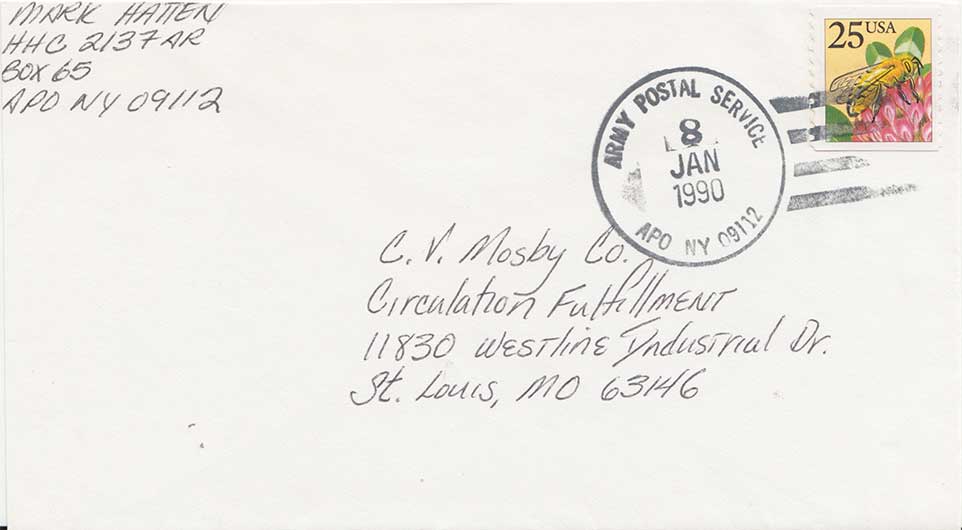 MARK HATTEN
HHC 2/37 AR
BOX 65
APO NY 09112
25 USA
ARMY POSTAL SERVICE
8
JAN
1990
APO NY 09112
C. V. Mosby Co.
Circulation Fulfillment
11830 Westline Industrial Dr.
St. Louis, MO 63146